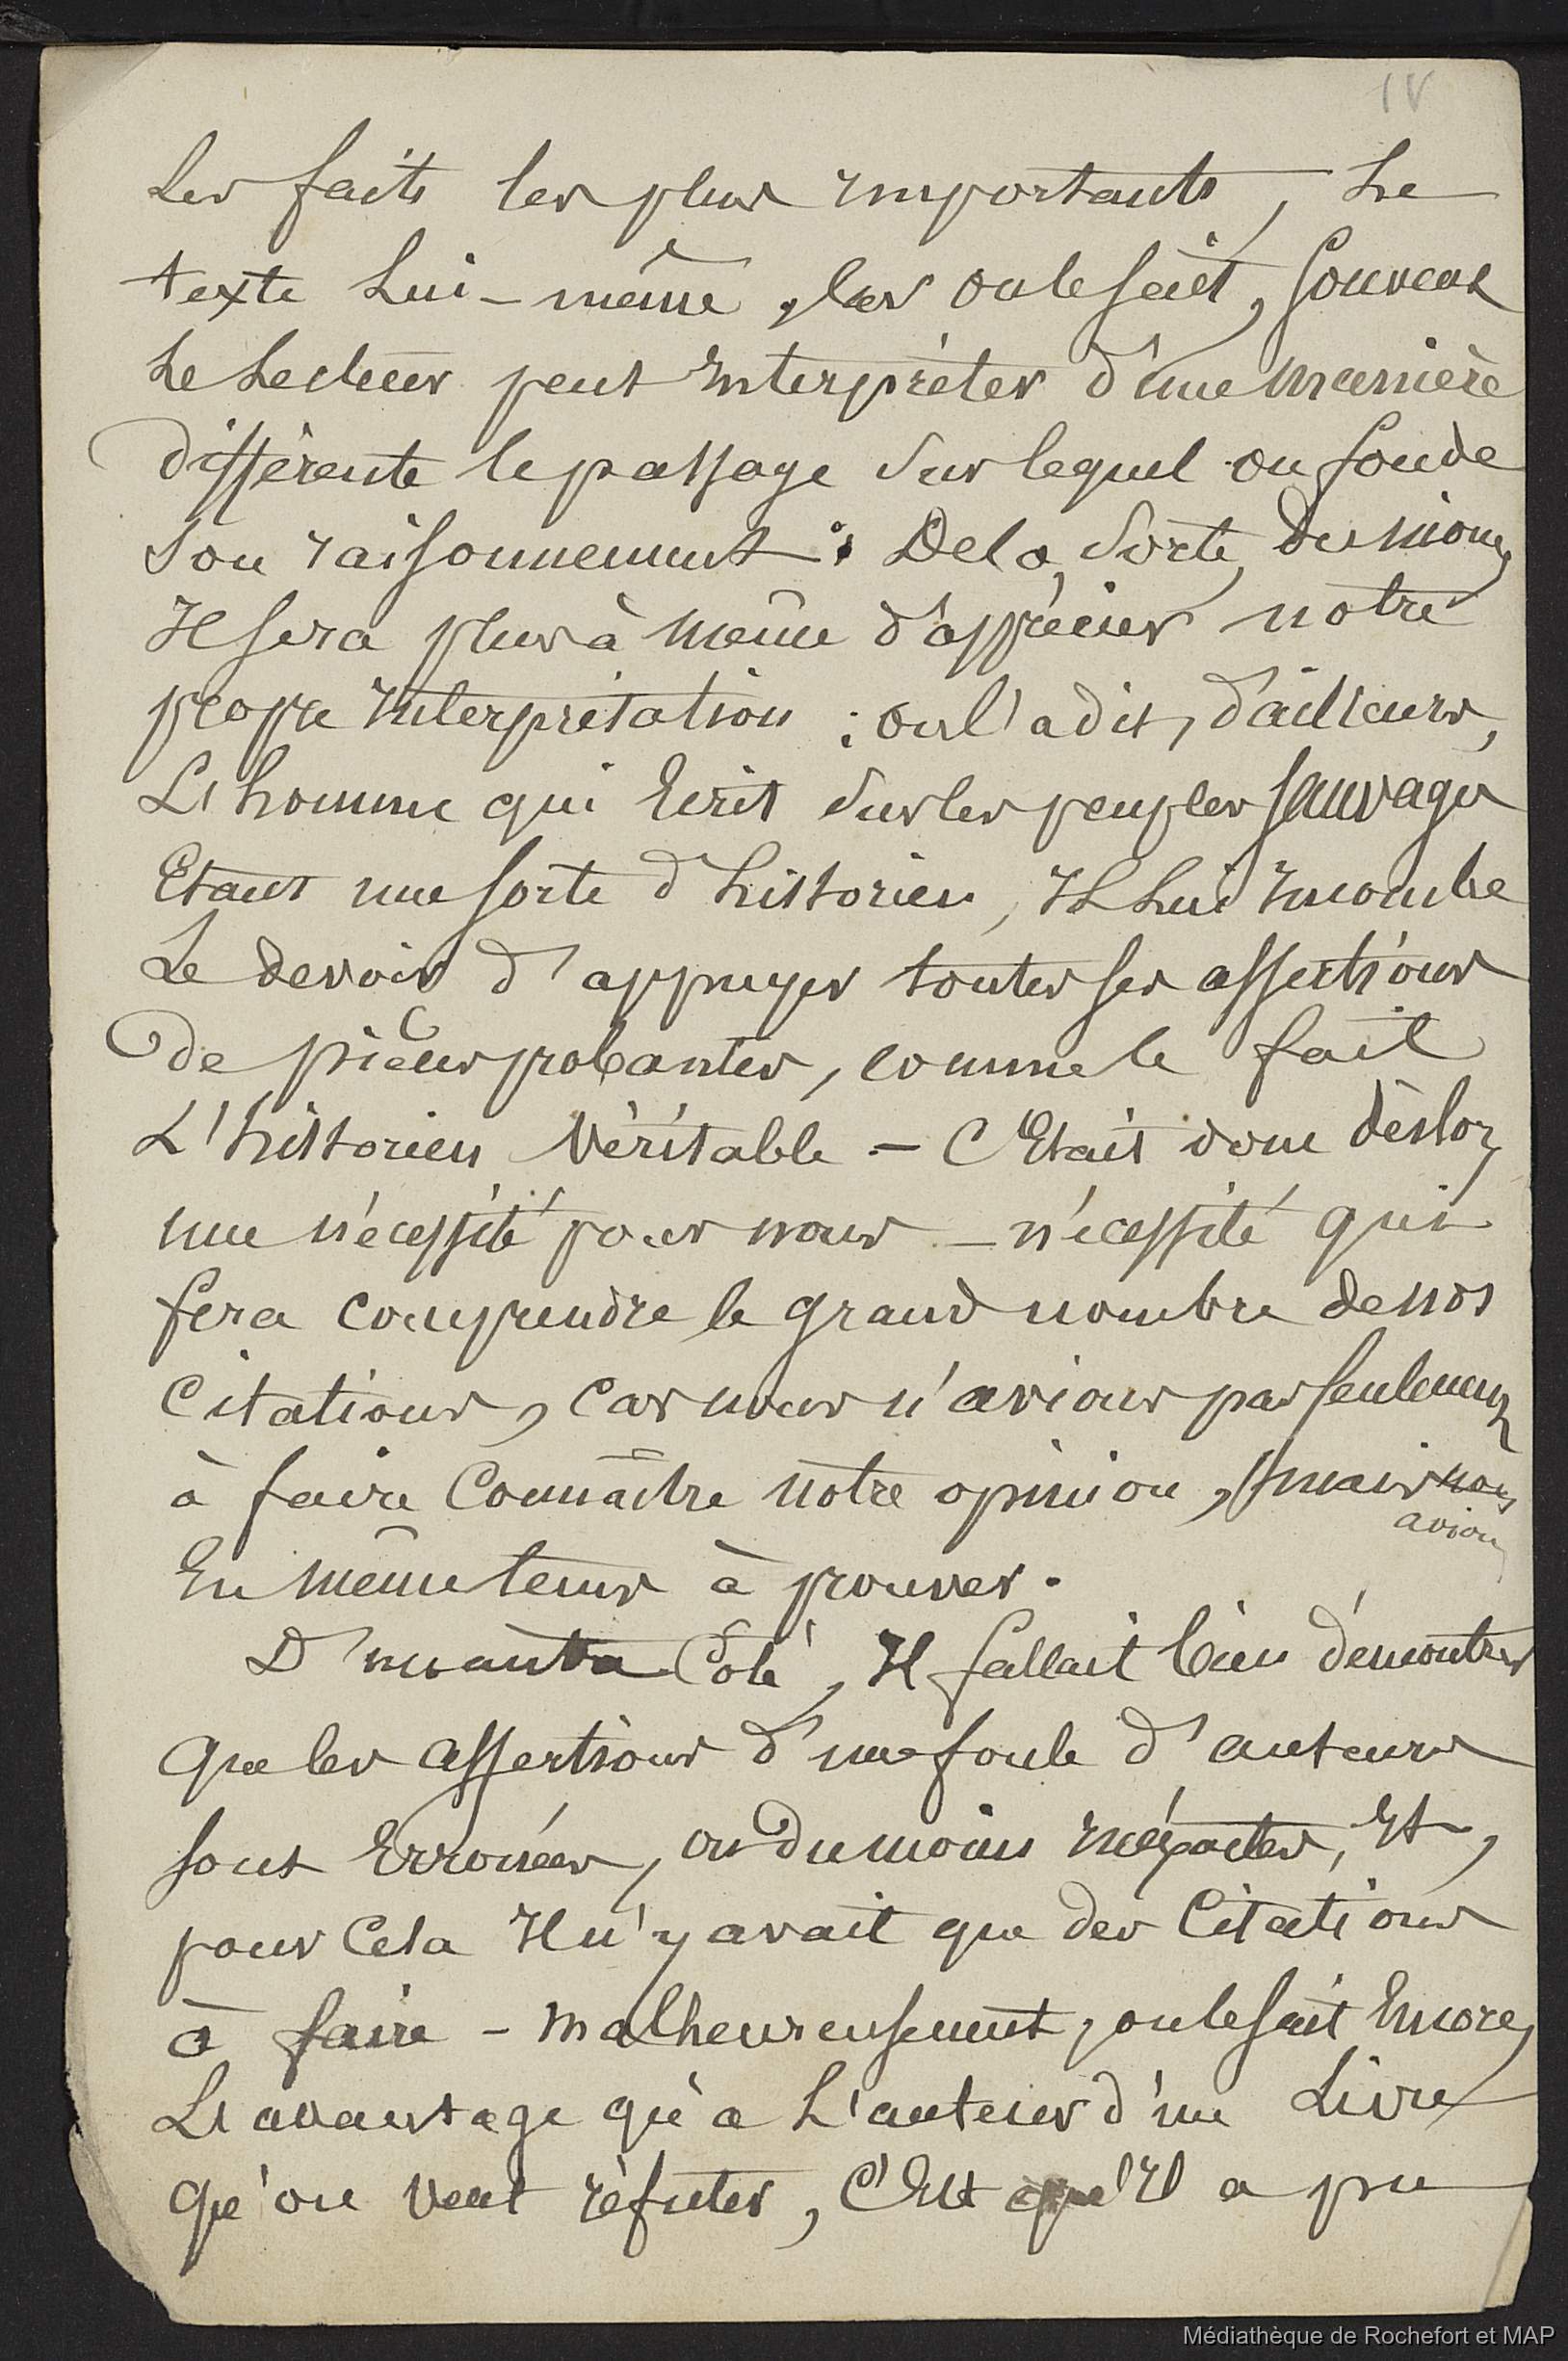 IV
Les faits les plus importants, le
texte lui-même, car on le sait, souvent
le lecteur peut interpréter d'une manière
différente le passage sur lequel on fonde
son raisonnement : De la sorte, du moins,
Il sera plus à même d'apprécier notre
propre interprétation : on l'a dit, d'ailleurs,
L'homme qui écrit sur les peuples sauvages
Etant une sorte d'historien, il lui incombe
Le devoir d'appuyer toutes ses assertions
De pièces probantes, comme le fait
L'historien véritable – C'était donc dès lors
une nécessité pour nous – nécessité qui
fera comprendre le grand nombre de nos
Citations, car nous n'avions pas seulement
à faire Connaître notre opinion, mais nous
avions
En même temps à prouver.
D'un autre Côté, Il fallait bien démontrer
Que les assertions d'une foule d'auteurs
sont Erronées, ou du moins inexactes, Et,
pour Cela Il n'y avait que des Citations
à faire – malheureusement, on le sait Encore,
L'avantage qu'a L'auteur d'un Livre
Qu'on veut réfuter, C'Est qu'Il a pu
Médiathèque de Rochefort et MAP